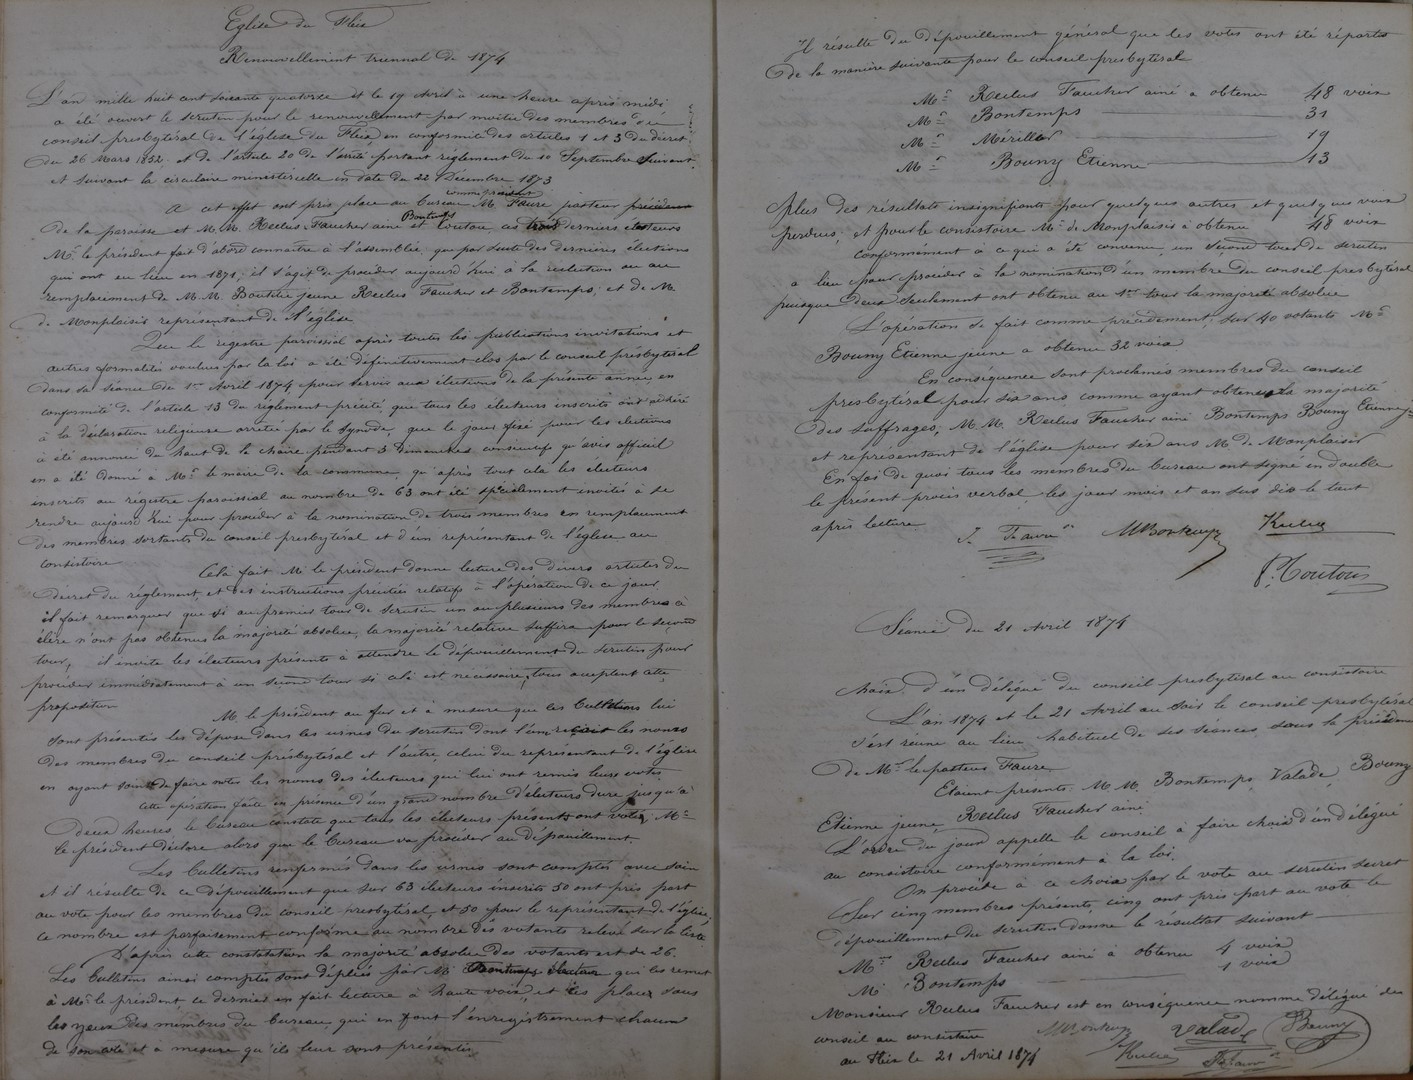 Eglise du Fleix
Renouvellement triennal de 1874
L'an mille huit cent soixante quatorze et le 19 Avril à une heure après midi
a été ouvert le scrutin pour le renouvellement par moitié des membres du
conseil presbytéral de l'église du Fleix, en conformité des articles 1 et 3 du décret
du 26 Mars 1852 et de l'article 20 de l'arrêté portant règlement du 10 Septembre suivant
et suivant la circulaire ministérielle en date du 22 Décembre 1873
A cet effet ont pris place au bureau M. Faure pasteur président
de la paroisse et M.M. Reclus Faucher ainé Bontemps et Toutou derniers
Mr. le président fait d'abord connaitre à l'assemblée, que par suite des dernières élections
qui ont eu lieu en 1871, il s'agit de procéder aujourd'hui à la réélection ou au
remplacement de M.M. jeune Reclus Faucher et Bontemps; et de M
de Monplaisir représentant de l'église
Que le registre paroissial après toutes les publications invitations et
autres formalités voulues par la loi a été définitivement clos par le conseil presbytéral
dans sa séance du 1er Avril 1874 pour servir aux élections de la présente année, en
conformité de l'article 13 du règlement précité, que tous les électeurs inscrits ont adhéré
à la déclaration religieuse arrêtée par le synode, que le jour fixé pour les élections
a été annoncé du haut de la chaire pendant 3 dimanches consécutifs qu'avis officiel
en a été donné à Mr. le maire de la commune, qu'après tout cela les électeurs
inscrits au registre paroissial au nombre de 63 ont été spécialement invités à se
rendre aujourd'hui pour procéder à la nomination de trois membres en remplacement
des membres sortants du conseil presbytéral et d'un représentant de l'église au
consistoire
Celà fait M. le président donne lecture des divers articles du
décret du règlement, et des instructions précitées relatifs à l'opération de ce jour
il fait remarquer que si au premier tour de scrutin un ou plusieurs des membres à
élire n'ont pas obtenus la majorité absolue, la majorité relative suffira pour le second
tour, il invite les électeurs présents à attendre le dépouillement du scrutin pour
procéder immédiatement à un second tour si celà est nécessaire, tous acceptent cette
proposition
M. le président au fur et à mesure que les bulletins lui
sont présentés les dépose dans les urnes du scrutin dont l'une reçoit les noms
des membres du conseil presbytéral et l'autre, celui du représentant de l'église
en ayant soin de faire noter les noms des électeurs qui lui ont remis leurs votes
Cette opération faite en présence d'un grand nombre d'électeurs dure jusqu'à
deux heures, le bureau constate que tous les électeurs présents ont votés, Mr
le président déclare alors que le bureau va procéder au dépouillement.
Les bulletins renfermés dans les urnes sont comptés avec soin
et il résulte de ce dépouillement que sur 63 électeurs inscrits 50 ont pris part
au vote pour les membres du conseil presbytéral, et 50 pour le représentant de l'église,
ce nombre est parfaitement conforme au nombre des votants relevé sur la liste
D'après cette constatation la majorité absolue des votants est de 26.
Les bulletins ainsi comptés sont dépliés par M. Bontemps qui les remet
à Mr. le président, ce dernier en fait lecture à haute voix, et les place sous
les yeux des membres du bureau qui en font l'enregistrement chacun
de son coté et à mesure qu'ils leur sont présentés.
Il résulte du dépouillement général que les votes ont été répartis
de la manière suivante pour le conseil presbytéral
Mr. Reclus Faucher ainé a obtenu 48 voix
Mr. Bontemps 31
Mr. Mérillier 19
Mr. Bouny Etienne 13
plus des résultats insignifiants pour quelques autres et quelques voix
perdues, et pour le consistoire Mr. de Monplaisir a obtenu 48 voix
Conformément à ce qui a été convenu, un second tour de scrutin
a lieu pour procéder à la nomination d'un membre du conseil presbytéral
puisque deux seulement ont obtenu au 1er tour la majorité absolue
L'opération se fait comme précédement, sur 40 votants Mr.
Bouny Etienne jeune a obtenu 32 voix
En conséquence sont proclamés membres du conseil
presbytéral pour six ans comme ayant obtenu la majorité
des suffrages, M.M. Reclus Faucher ainé Bontemps Bouny Etienne
et représentant de l'église pour six ans M. de Monplaisir
En foi de quoi tous les membres du bureau ont signé en double
le présent procès verbal les jour mois et an sus dis le tout
après lecture
J. Faure MBontemps Reclus
P. Toutou
Séance du 21 Avril 1874
Choix d'un délégué du conseil presbytéral au consistoire
L'an 1874 et le 21 Avril au soir le conseil presbytéral
s'est réuni au lieu habituel de ses séances sous la présidence
de Mr. le pasteur Faure
Etaient présents. M.M. Bontemps, Valade, Bouny
Etienne jeune, Reclus Faucher ainé.
L'ordre du jour appelle le conseil à faire choix d'un délégué
au consistoire conformément à la loi.
On procède à ce choix par le vote au scrutin secret
Sur cinq membres présents cinq ont pris part au vote le
dépouillement du scrutin donne le résultat suivant
Mr. Reclus Faucher ainé a obtenu 4 voix
M. Bontemps 1 voix
Monsieur Reclus Faucher est en conséquence nommé délégué du
conseil au consistoire
MBontemps Valade Bouny
au Fleix le 21 Avril 1874 Reclus J. Faure